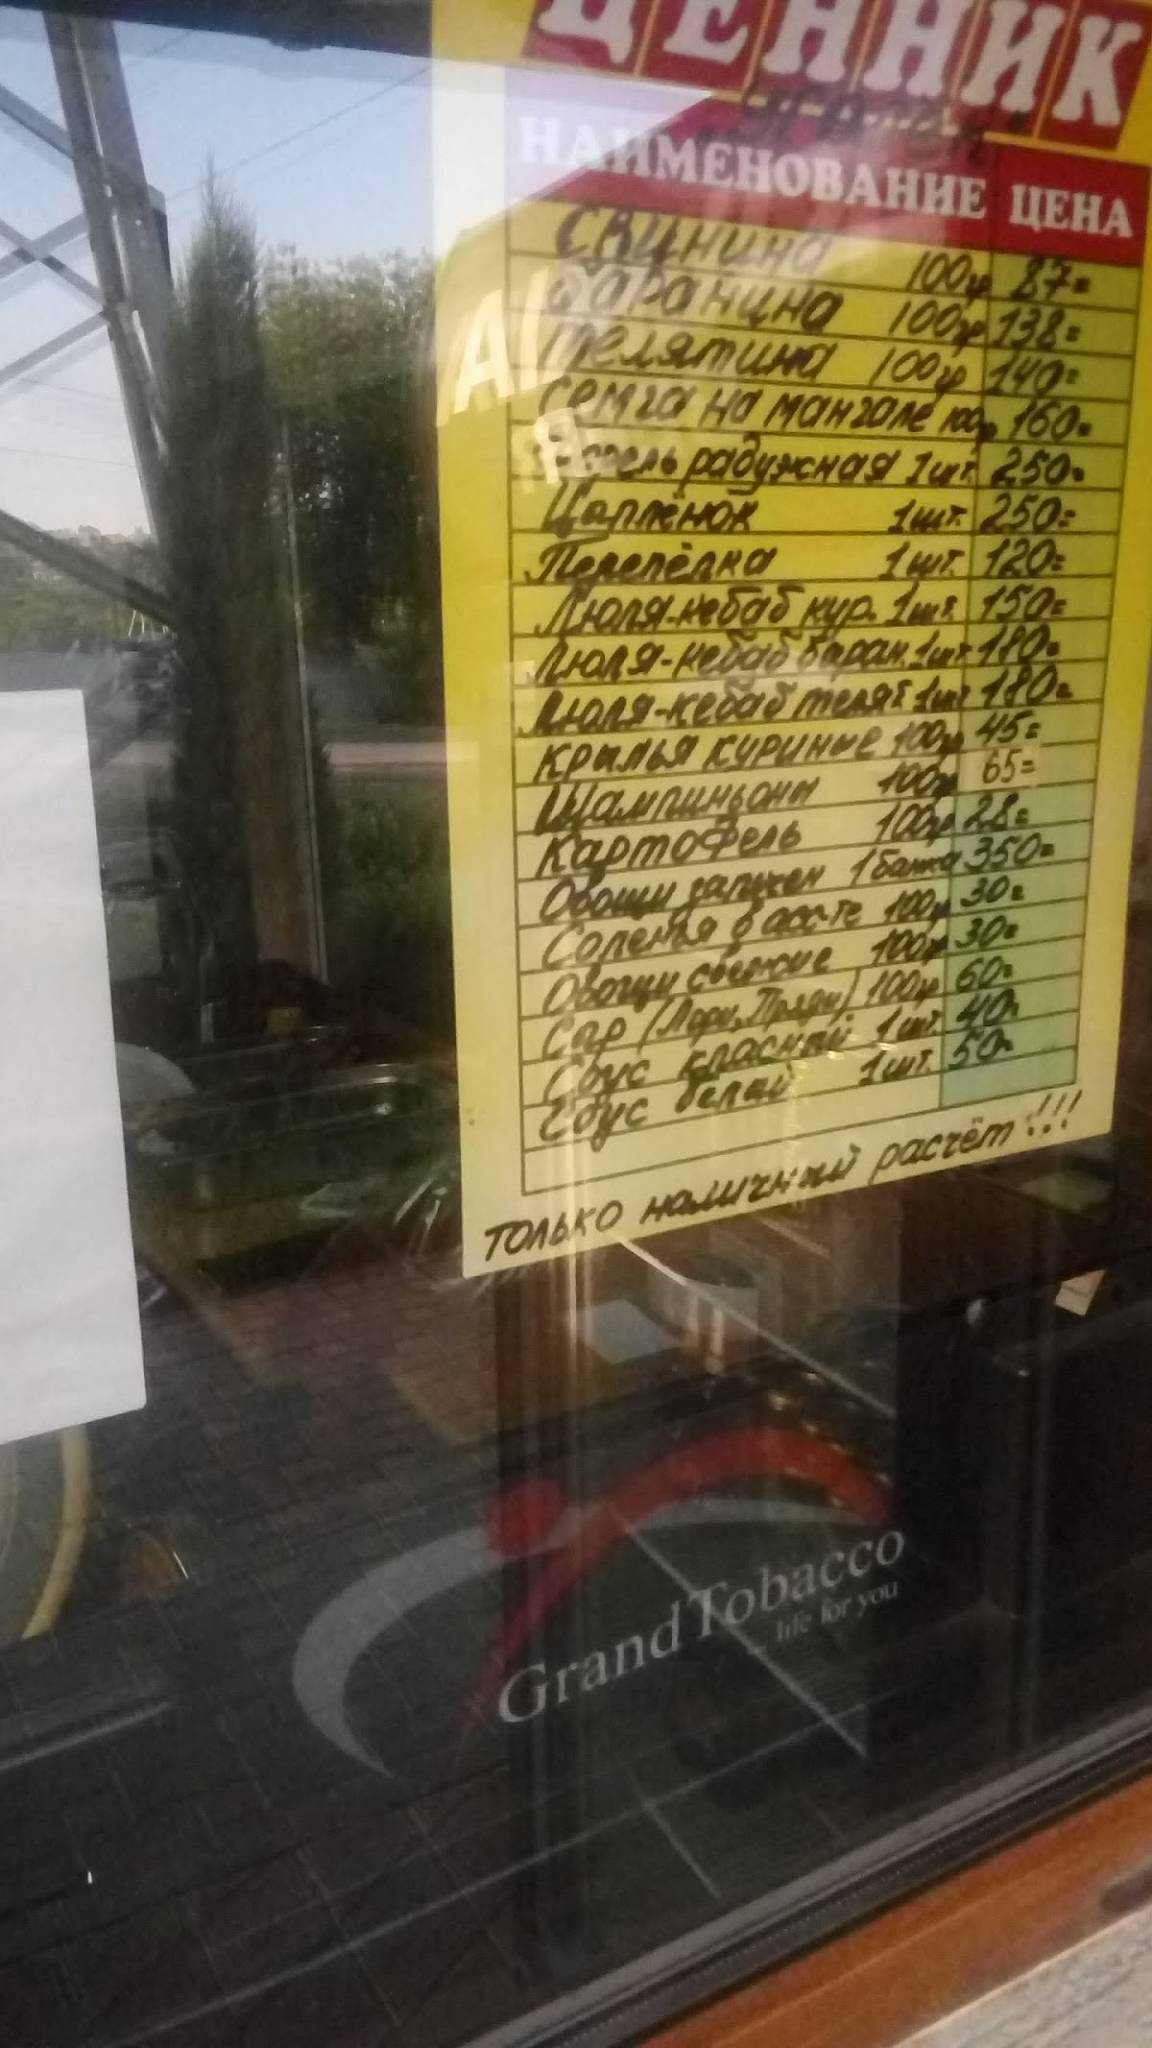 ЦЕННИК
НАИМЕНОВАНИЕ ЦЕНА
Свинина 100гр 87=
Баранина 100гр 138=
Телятина 100гр 140=
Семга на мангале 100гр 160=
Форель радужная 1шт. 250=
Цыплёнок 1шт. 250=
Перепёлка 1шт. 120=
Люля-кебаб кур. 1шт. 150=
Люля-кебаб баран. 1шт 180=
Люля-кебаб телят 1шт 180=
Крылья куриные 100гр 45=
Шампиньоны 100гр 65=
Картофель 100гр 28=
Овощи запечен 1банка 350=
Соленья в асс-те 100гр 30=
Овощи свежие 100гр 30=
Сыр (Лори, ) 100гр 60=
Соус красный 1шт. 40=
Соус белый 1шт. 50=
только наличный расчёт!!!
Grand Tobacco
... life for you